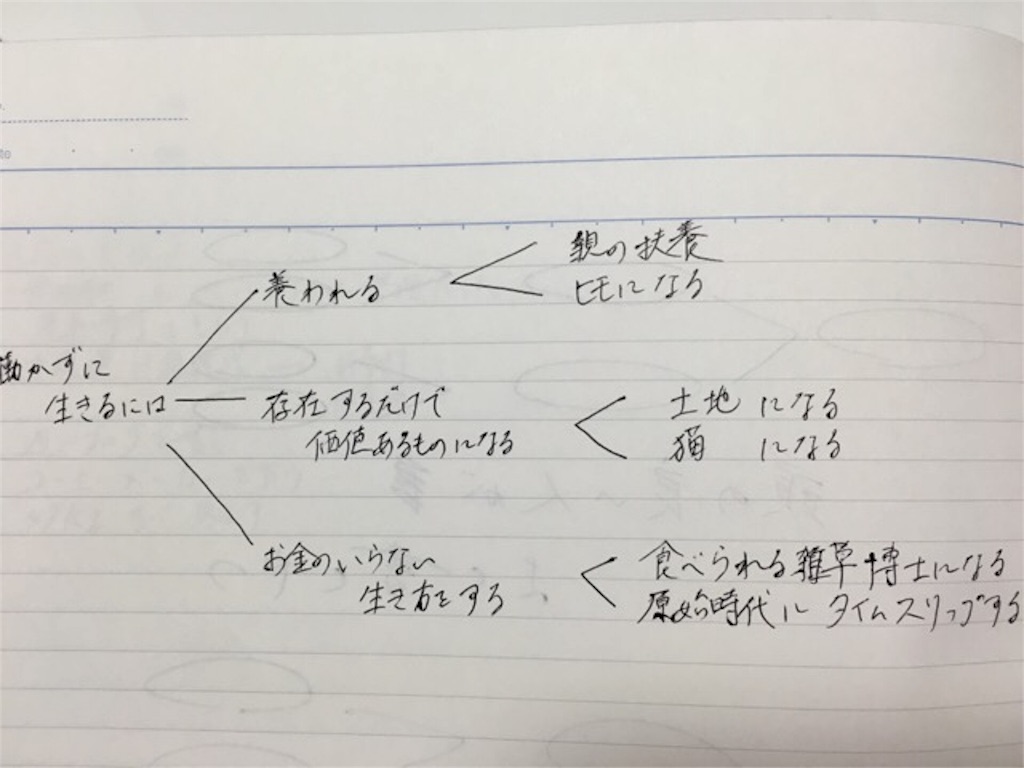 働かずに
生きるには
養われる
親の扶養
ヒモになる
存在するだけで
価値あるものになる
土地になる
猫になる
お金のいらない
生き方をする
食べられる雑草博士になる
原始時代にタイムスリップする